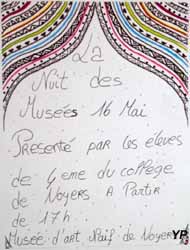 La
Nuit des
Musées 16 Mai
Présenté par les éleves
de 4eme du collège
de Noyers A Partir
de 17h
Musée d'art Naïf de Noyers
YP